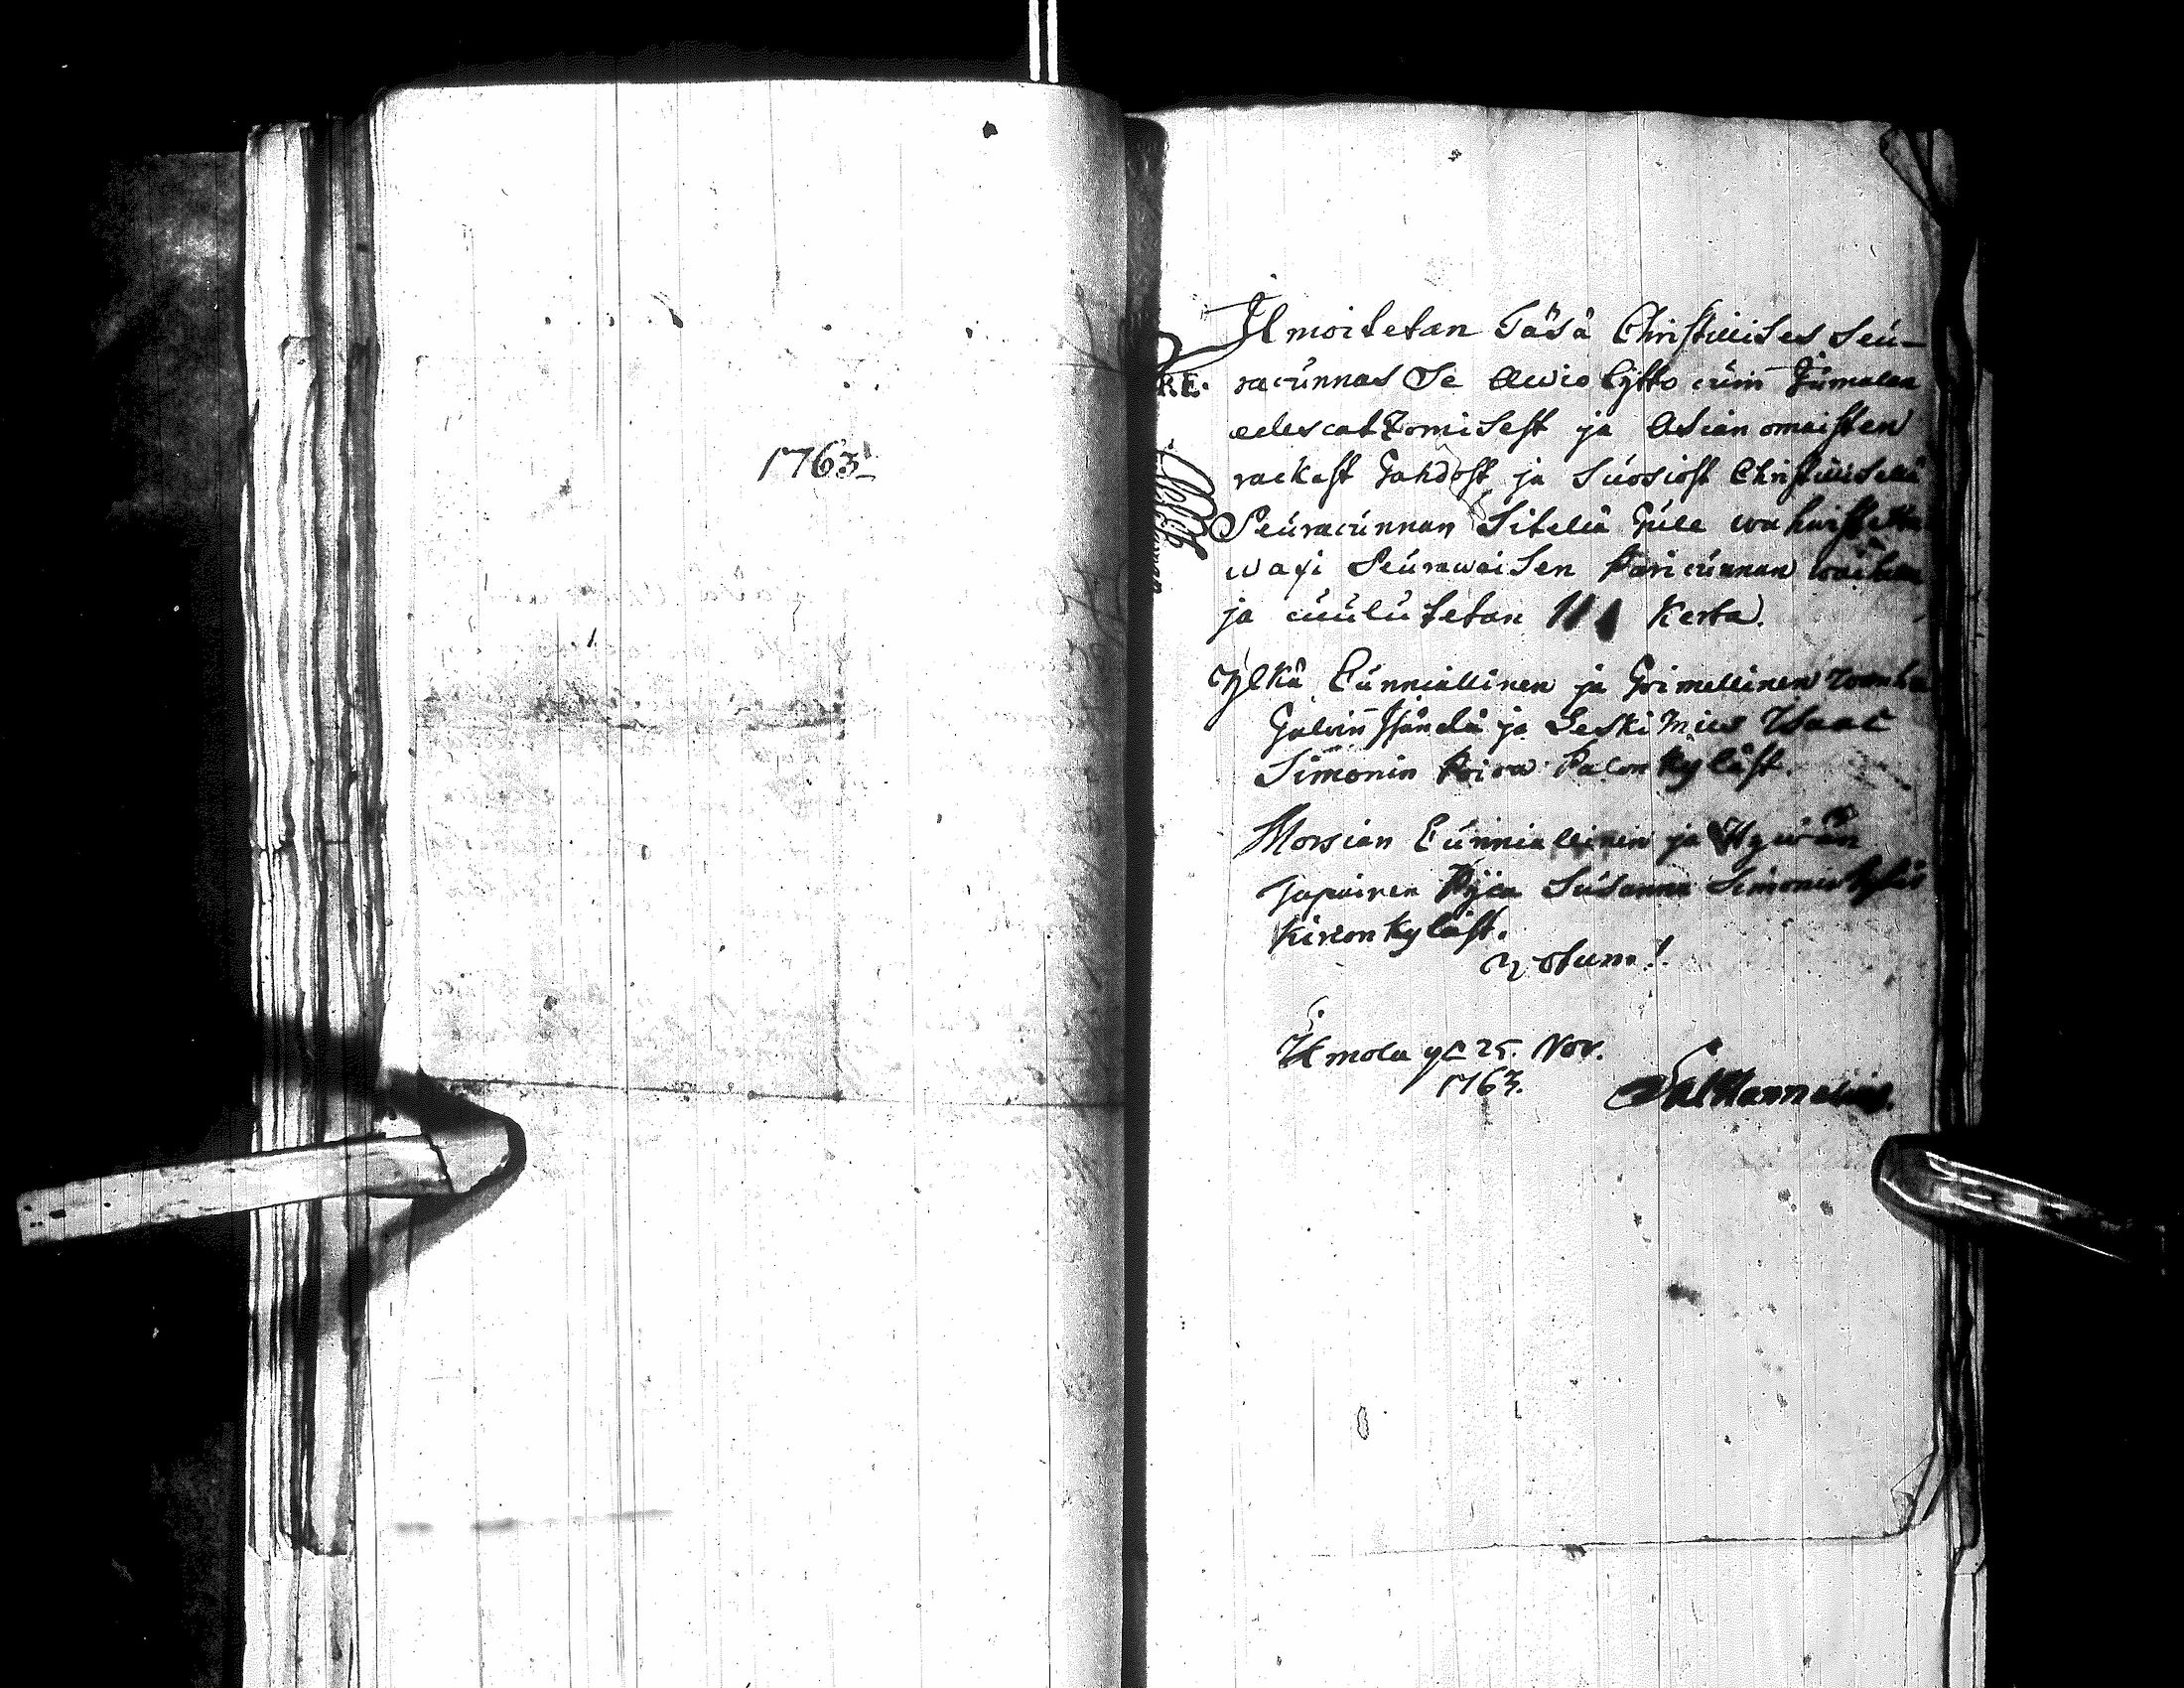 1763
Ilmoitetan Täsä Christillises Seu-
RE.
racunnas Se Awio Lijtto cuin Jumalan
edescatzomisest ja Asianomaisten
rackast Tahdost ja Suosiost Christilisellä
Seuracunnan Sitellä Tule wahwistetta
waxi Seurawaisen Pariscunnan wälillä
ja cuulutetan III Kerta.
Ylkä Cunniallinen ja Toimellinen
Taloin Isändä ja Leski Mies Isaac
Simonin Poica Palon Kyläst.
Morsian Cunniallinen ja Hywän
Tapainen Pijca Susanna Simonin
Kirkon Kyläst.
Votum!
Ilmola ye 25. Nov.
1763.